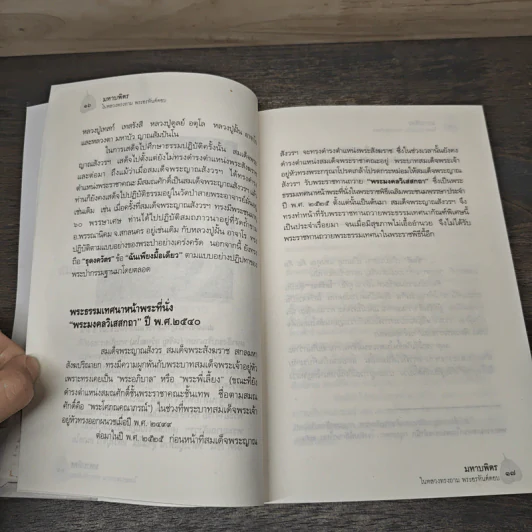 ๑๖
มหาบพิตร
ในหลวงทรงถาม พระอรหันต์ตอบ
หลวงปู่เทสก์ เทสรังสี หลวงปู่ดูลย์ อตุโล หลวงปู่ฝั้น อาจาโร
และหลวงตา มหาบัว ญาณสัมปันโน
ในการเสด็จไปศึกษาธรรมปฏิบัติครั้งนั้น สมเด็จพระ
ญาณสังวรฯ เสด็จไปตั้งแต่ยังไม่ทรงดำรงตำแหน่งพระสังฆราช
และต่อมา ถึงแม้ว่าเมื่อสมเด็จพระญาณสังวรฯ ได้ทรง
ตำแหน่งพระราชาคณะ มีสมณศักดิ์เป็นสมเด็จพระญาณสังวรฯ แล้ว
ท่านก็ยังคงเสด็จไปปฏิบัติธรรมอยู่ในวัดป่าสายพระอาจารย์มั่น
เช่นเดิม เช่น เมื่อครั้งที่สมเด็จพระญาณสังวรฯ ทรงมีพระชนมายุ
๖๐ พรรษาเศษ ท่านได้ไปปฏิบัติสมถภาวนาอยู่ที่วัดถ้ำขาม
อ.พรรณานิคม จ.สกลนคร อยู่เช่นเดิม กับหลวงปู่ฝั้น อาจาโร
ปฏิบัติตามแบบอย่างของพระป่าอย่างเคร่งครัด นอกจากนี้ ยังทรง
ถือ “ธุดงควัตร” ข้อ “ฉันเพียงมื้อเดียว” ตามแบบอย่างปฏิปทาของ
พระป่ากรรมฐานมาโดยตลอด
พระธรรมเทศนาหน้าพระที่นั่ง
“พระมงคลวิเสสกถา” ปี พ.ศ.๒๕๔๐
สมเด็จพระญาณสังวร สมเด็จพระสังฆราช สกลมหา
สังฆปริณายก ทรงมีความผูกพันกับพระบาทสมเด็จพระเจ้าอยู่หัว
เพราะทรงเคยเป็น “พระอภิบาล” หรือ “พระพี่เลี้ยง” (ขณะที่ยัง
ดำรงตำแหน่งสมณศักดิ์ชั้นพระราชาคณะชั้นเทพ ชื่อตามสมณ
ศักดิ์คือ “พระโศภณคณาภรณ์”) ในช่วงที่พระบาทสมเด็จพระเจ้า
อยู่หัวทรงออกผนวชเมื่อปี พ.ศ. ๒๔๙๙
ต่อมาในปี พ.ศ. ๒๕๒๕ ก่อนหน้าที่สมเด็จพระญาณ
สังวรฯ จะทรงดำรงตำแหน่งพระสังฆราช ซึ่งในช่วงเวลานั้นยังคง
ดำรงตำแหน่งสมเด็จพระราชาคณะอยู่ พระบาทสมเด็จพระเจ้า
อยู่หัวทรงพระกรุณาโปรดเกล้าโปรดกระหม่อมให้สมเด็จพระญาณ
สังวรฯ รับพระราชทานถวาย “พระมงคลวิเสสกถา” ซึ่งเป็นพระ
ธรรมเทศนาหน้าพระที่นั่งในพระราชพิธีเฉลิมพระชนมพรรษาประจำ
ปี พ.ศ. ๒๕๒๕ ตั้งแต่นั้นเป็นต้นมา สมเด็จพระญาณสังวรฯ จึง
ทรงทำหน้าที่รับพระราชทานถวายพระธรรมเทศนากัณฑ์พิเศษนี้
เป็นประจำเรื่อยมา จนเมื่อมีสุขภาพไม่เอื้ออำนวย จึงไม่ได้รับ
พระราชทานถวายพระธรรมเทศนาในพระราชพิธีนี้อีก
มหาบพิตร
ในหลวงทรงถาม พระอรหันต์ตอบ
๑๗